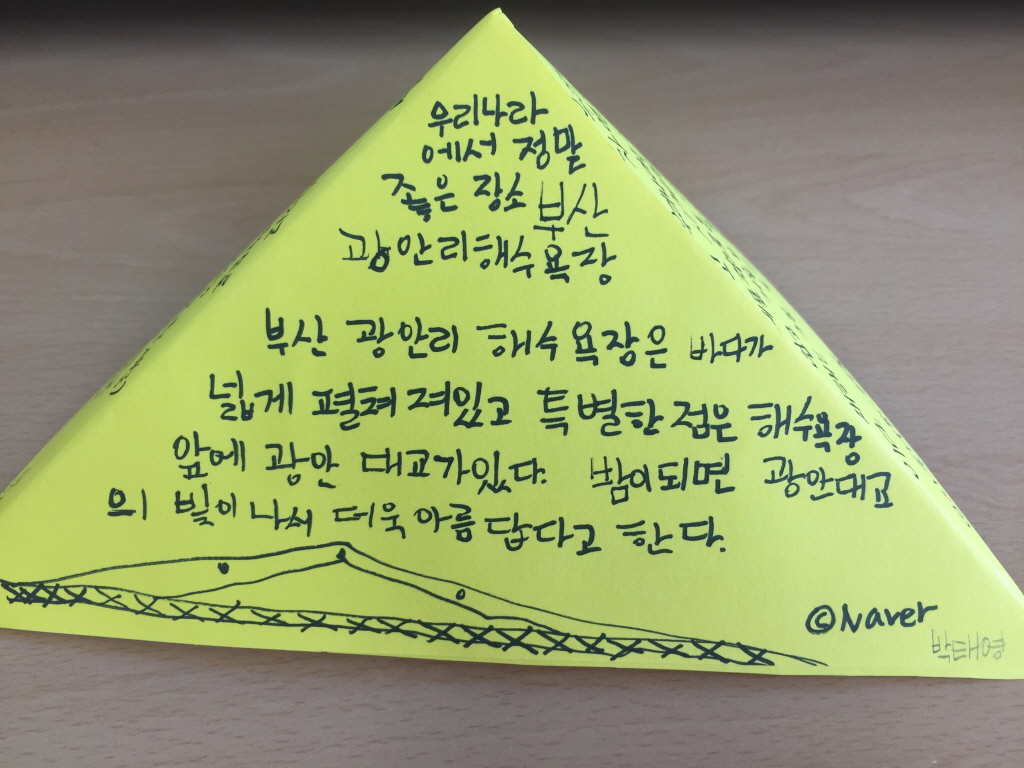 우리나라
에서 정말
좋은 장소 부산
광안리해수욕장
부산 광안리 해수욕장은 바다가
넓게 펼쳐져있고 특별한 점은 해수욕장
앞에 광안 대교가있다. 밤이되면 광안대교
의 빛이 나서 더욱 아름답다고 한다.
©Naver
박태영